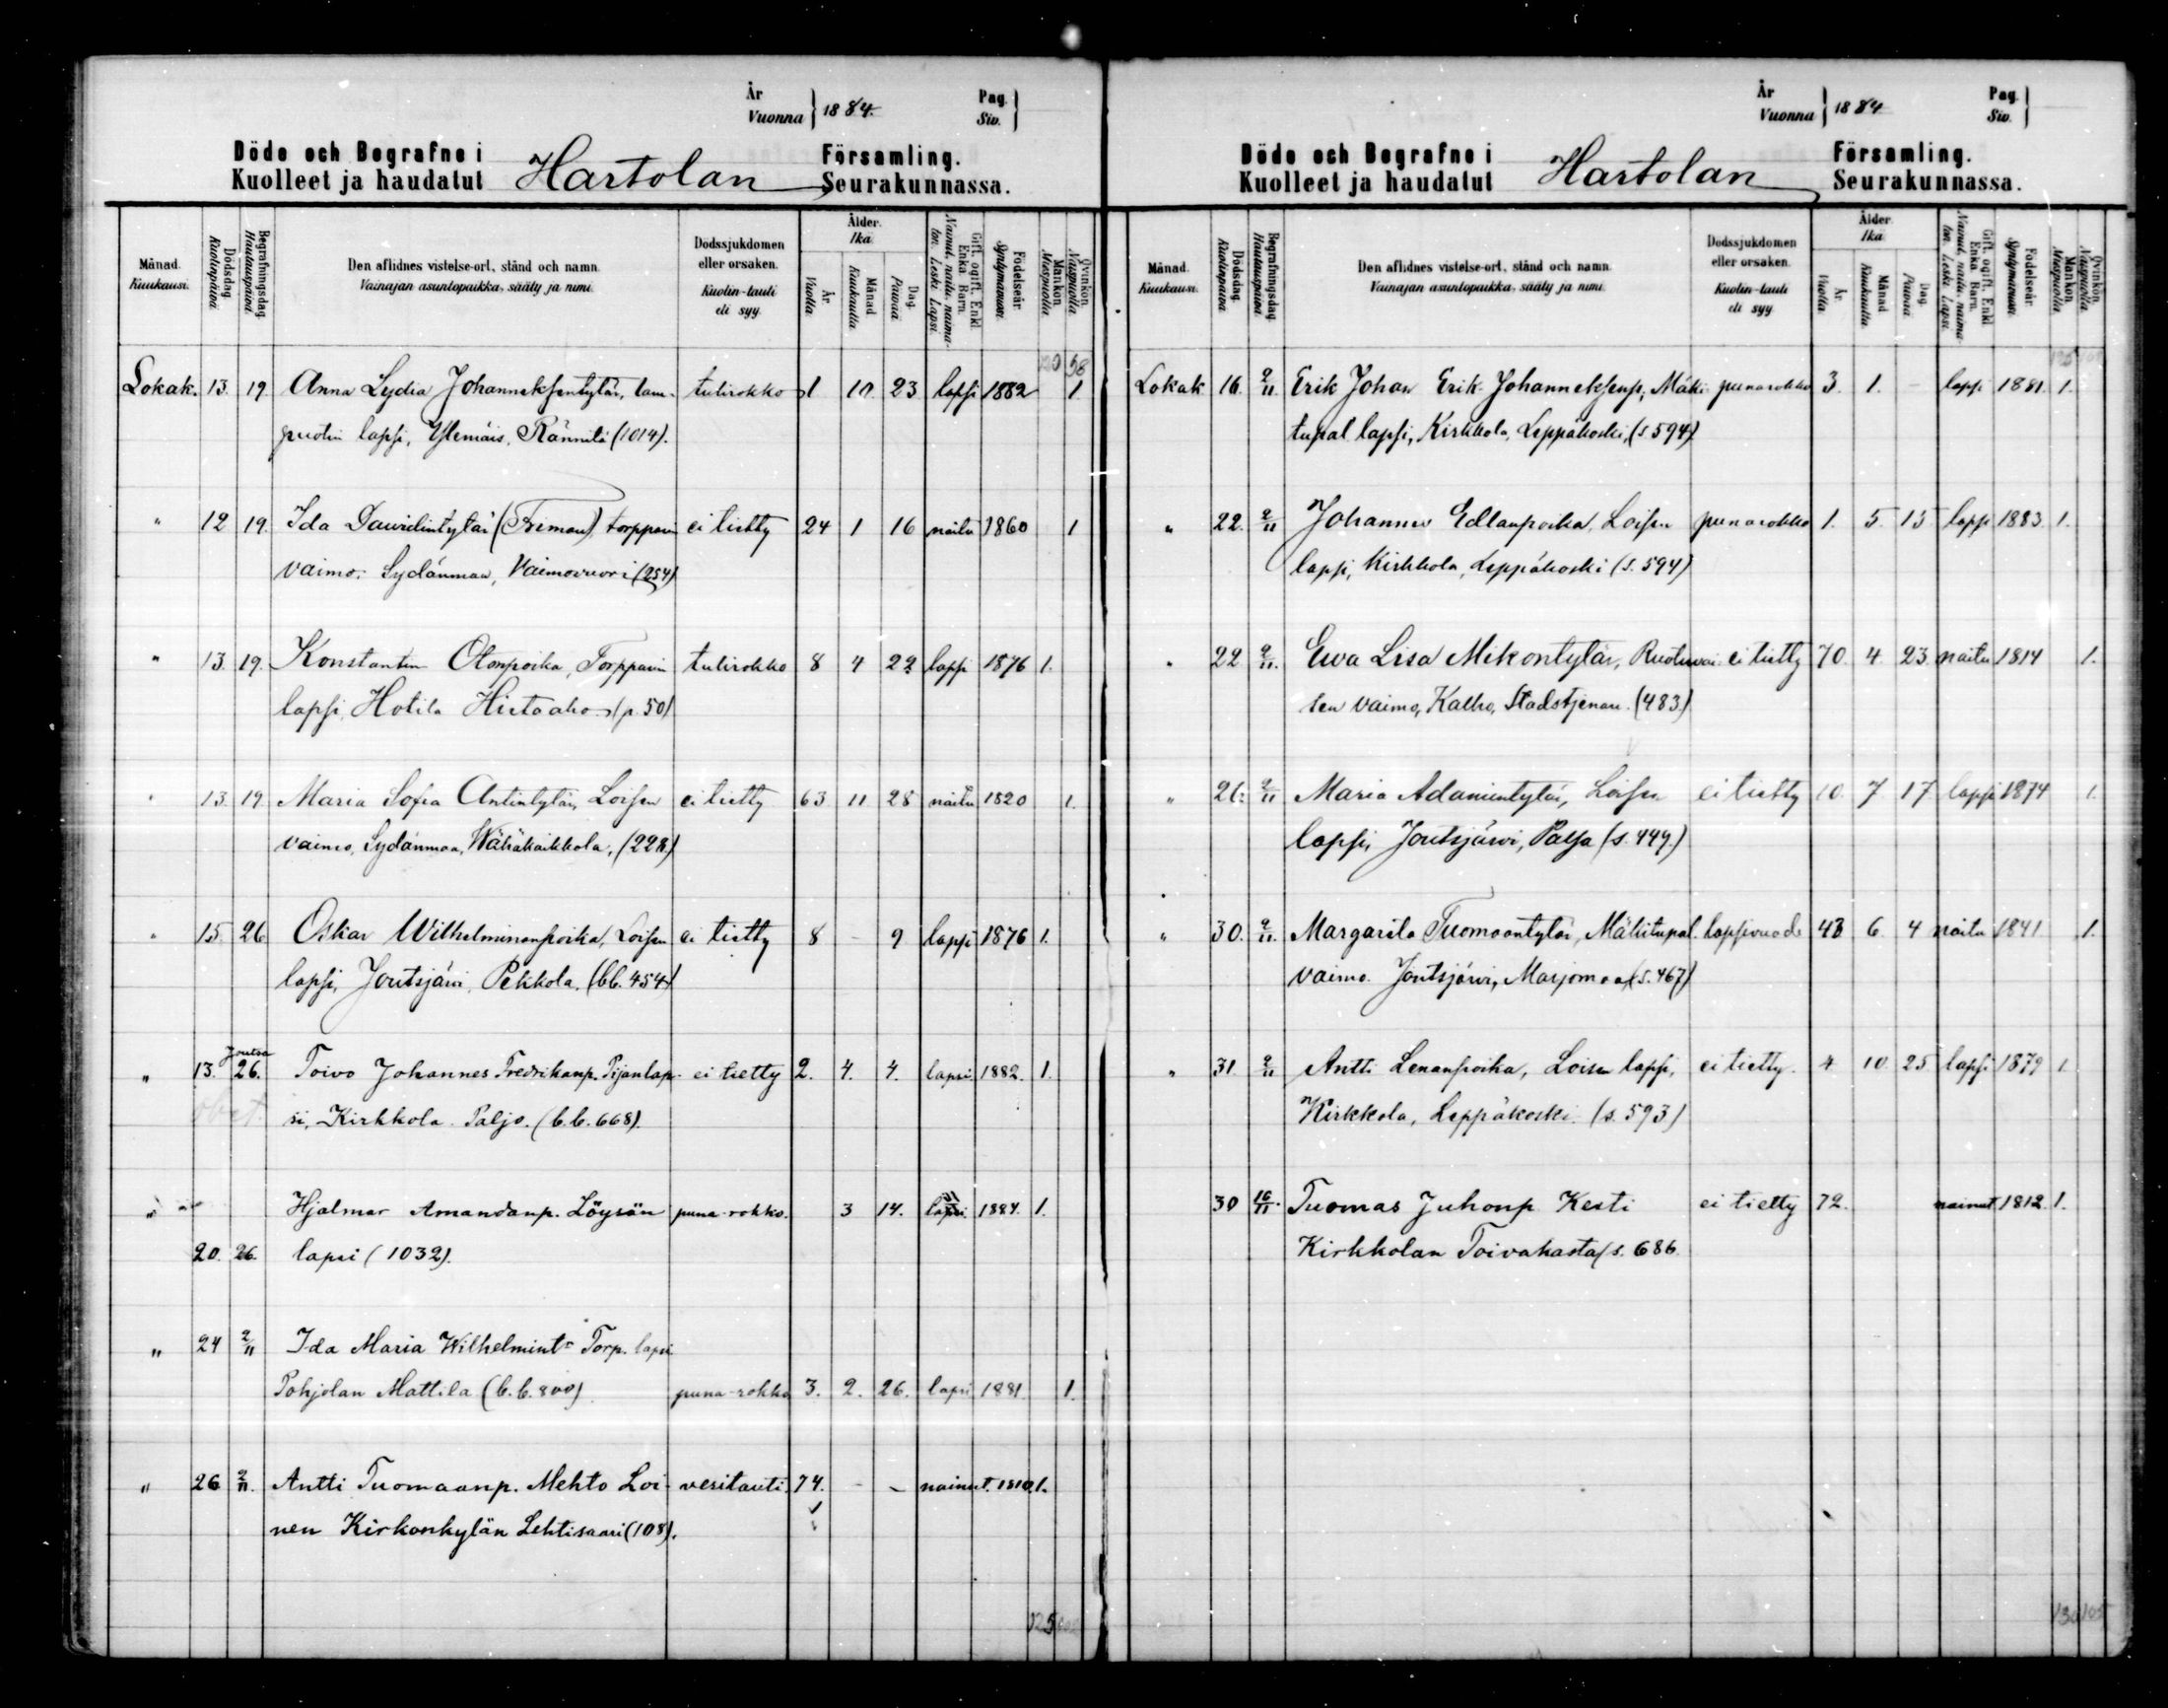 År
Vuonna } 1884.
Pag.
Siv. }
Döde och Begrafne i Hartolan Församling.
Kuolleet ja haudatut Seurakunnassa.
Månad. Kuukausi. Dödsdag. Kuolinpäivä. Begrafningsdag. Hautauspäivä. Den aflidnes vistelse-ort, stånd och namn. Vainajan asuntopaikka, sääty ja nimi. Dödssjukdomen eller orsaken. Kuolin-tauti eli syy. Ålder. Ikä. År Vuotta Månad Kuukautta Dag Päivää Gift, ogift, Enkl. Enka. Barn. Nainut, naitu, naimaton. Leski. Lapsi. Födelseår. Syntymävuosi. Mankön. Miespuolia. Qvinkön. Naispuolia.
98
Lokak. 13. 19. Anna Lydia Johanneksentytär, lam- tulirokko 1 10 23 lapsi 1882 1.
puotin lapsi, Ylemäis, Rännilä (1014).
" 12 19. Ida Davidintytär (Friman) torpparin ei tietty 24 1 16 naitu 1860 1
vaimo; Sydänmaa, Vaimovuori (254)
" 13. 19. Konstantin Otonpoika, Torpparin tulirokko 8 4 22 lapsi 1876 1.
lapsi, Hotila Hietaaho (p. 50)
" 13 19 Maria Sofia Antintytär, Loisen ei tietty 63 11 28 naitu 1820 1.
vaimo, Sydänmaa, Wähäkaikkola,
" 15. 26 Oskar Wilhelminanpoika, Loisen ei tietty 8 - 9 lapsi 1876 1.
lapsi, Joutsjärvi, Pekkola. (bb. 454)
Joutsa
" 13. 26. Toivo Johannes Fredrikanp. Pijanlap- ei tietty 2. 4. 4. lapsi 1882. 1.
si, Kirkkola Paljo. (b.b. 668).
" Hjalmar Amandanp. Löysän puna-rokko. 3 14. lapsi 1884. 1.
20. 26. lapsi (1032).
" 24 2/11 Ida Maria Wilhelmint. Torp. lapsi
Pohjolan Mattila (b.b. 800) puna-rokko 3. 2. 26. lapsi 1881. 1.
" 26 2/11. Antti Tuomaanp. Mehto Loi- vesitauti. 74. - - nainut. 1810. 1.
nen Kirkonkylän Lehtisaari (108).
125
År
Vuonna } 1884
Pag.
Siv. }
Döde och Begrafne i Hartolan Församling.
Kuolleet ja haudatut Seurakunnassa.
Månad. Kuukausi. Dödsdag. Kuolinpäivä. Begrafningsdag. Hautauspäivä. Den aflidnes vistelse-ort, stånd och namn. Vainajan asuntopaikka, sääty ja nimi. Dödssjukdomen eller orsaken. Kuolin-tauti eli syy. Ålder. Ikä. År Vuotta Månad Kuukautta Dag Päivää Gift, ogift, Enkl. Enka. Barn. Nainut, naitu, naimaton. Leski. Lapsi. Födelseår. Syntymävuosi. Mankön. Miespuolia. Qvinkön. Naispuolia.
Lokak 16. 2/11. Erik Johan Erik Johanneksenp, Mäki- punarokko 3. 1. - lapsi 1881. 1.
tupal lapsi, Kirkkola, Leppäkoski, (s. 594)
" 22. 2/11 Johannes Edlanpoika, Loisen punarokko 1. 5. 15 lapsi 1883. 1.
lapsi, Kirkkola, Leppäkoski (s. 594)
" 22 2/11. Ewa Lisa Mikontytär, Ruotuvai- ei tietty 70. 4. 23 naitu 1814 1.
sen vaimo, Kalho, Stadstjenar. (483)
" 26. 2/11 Maria Adamintytär, Loisen ei tietty 10. 7. 17 lapsi 1874 1.
lapsi, Joutsjärvi, Palsa (s. 449.)
" 30. 2/11. Margarita Tuomaantytär, Mäkitupal. lapsivuode 43 6. 4 naitu 1841 1.
vaimo. Joutsjärvi, Marjomaa (s. 467)
" 31. 2/11 Antti Lenanpoika, Loisen lapsi, ei tietty. 4 10 25 lapsi 1879 1.
Kirkkola, Leppäkoski. (s. 593)
30 16/11. Tuomas Juhonp Kesti ei tietty 72. nainut. 1812. 1.
Kirkkolan Toivakasta (s. 686
130 105